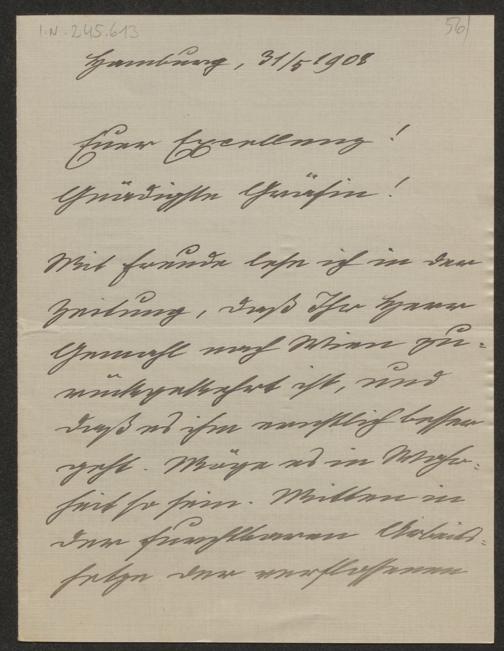 I.N. 245.613
56
Hamburg, 31/5 1908
Euer Excellenz!
Gnädigste Gräfin!
Mit Freude lese ich in der
Zeitung, daß Ihr Herr
Gemahl nach Wien zu-
rückgekehrt ist, und
daß es ihm ernstlich besser
geht. Möge es in Wahr-
heit so sein. Mitten in
der furchtbaren Arbeits-
hetze der verflossenen